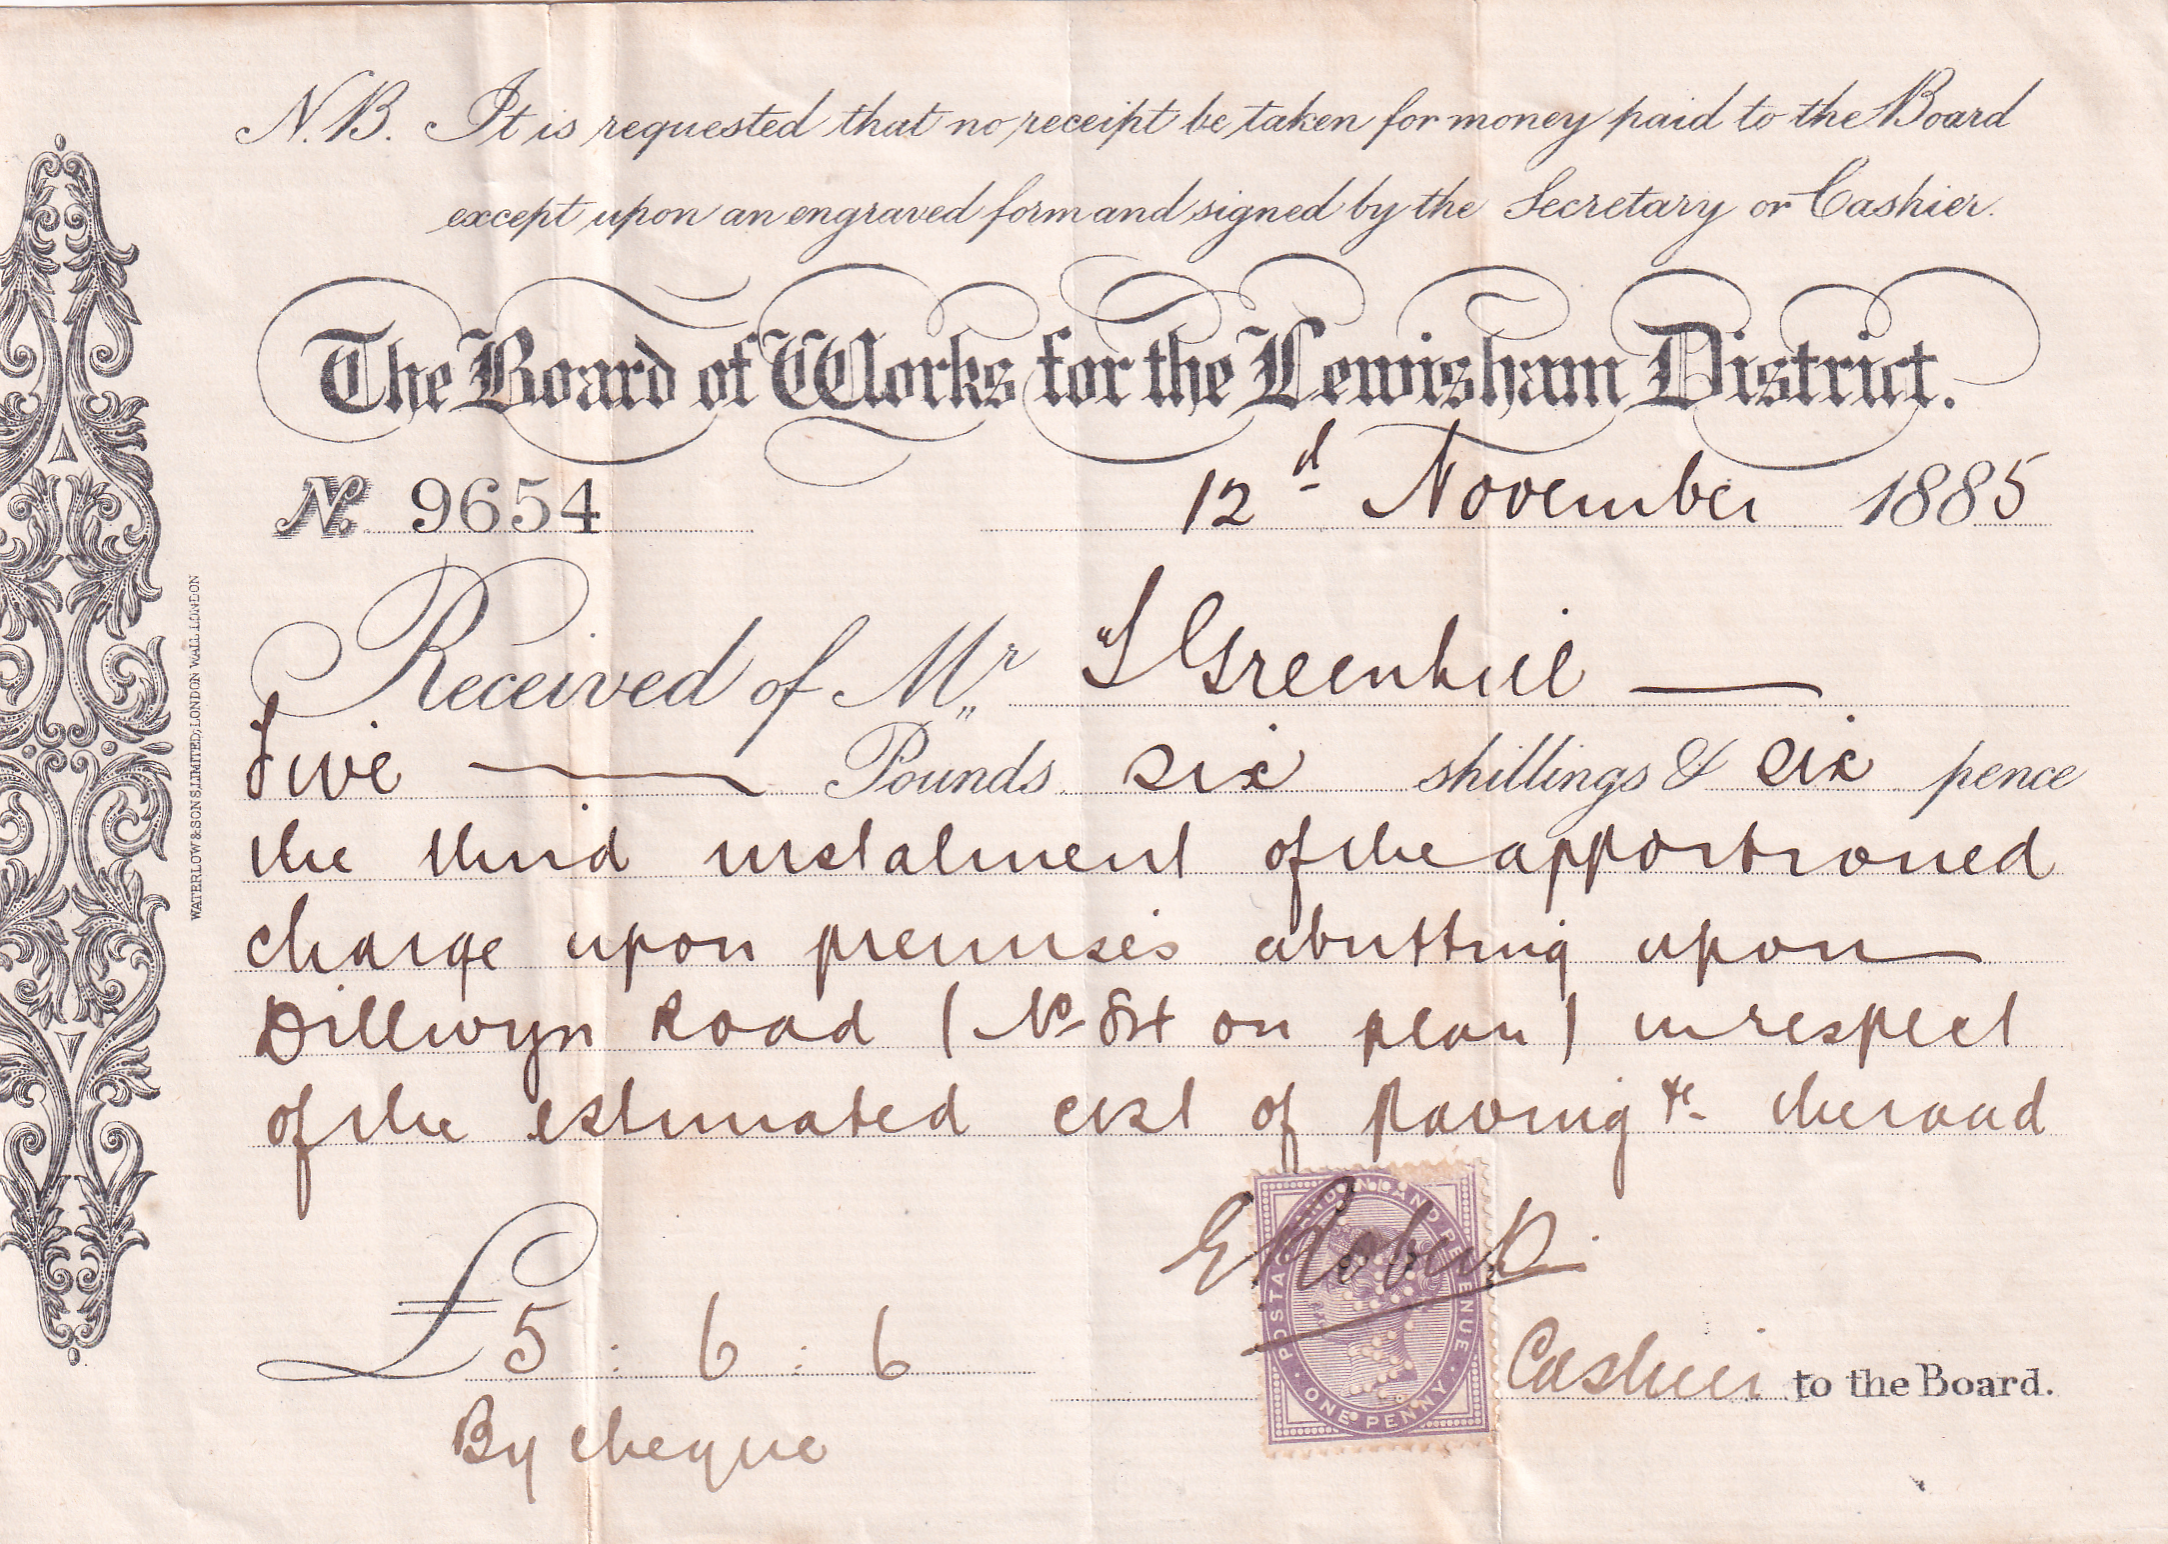 N.B. It is requested that no receipt be taken for money paid to the Board
except upon an engraved form and signed by the Secretary or Cashier.
The Board of Works for the Lewisham District.
No. 9654 12d November 1885
Received of Mr Greenhill
five Pounds six shillings & six pence
the third instalment of the apportioned
charge upon premises abutting upon
Dillwyn Road (No 84 on plan) in respect
of the estimated cost of paving &c the road
£5 : 6 : 6
By cheque
E Roberts
Cashier to the Board.
POSTAGE AND INLAND REVENUE
ONE PENNY
WATERLOW & SONS, LIMITED, LONDON WALL, LONDON